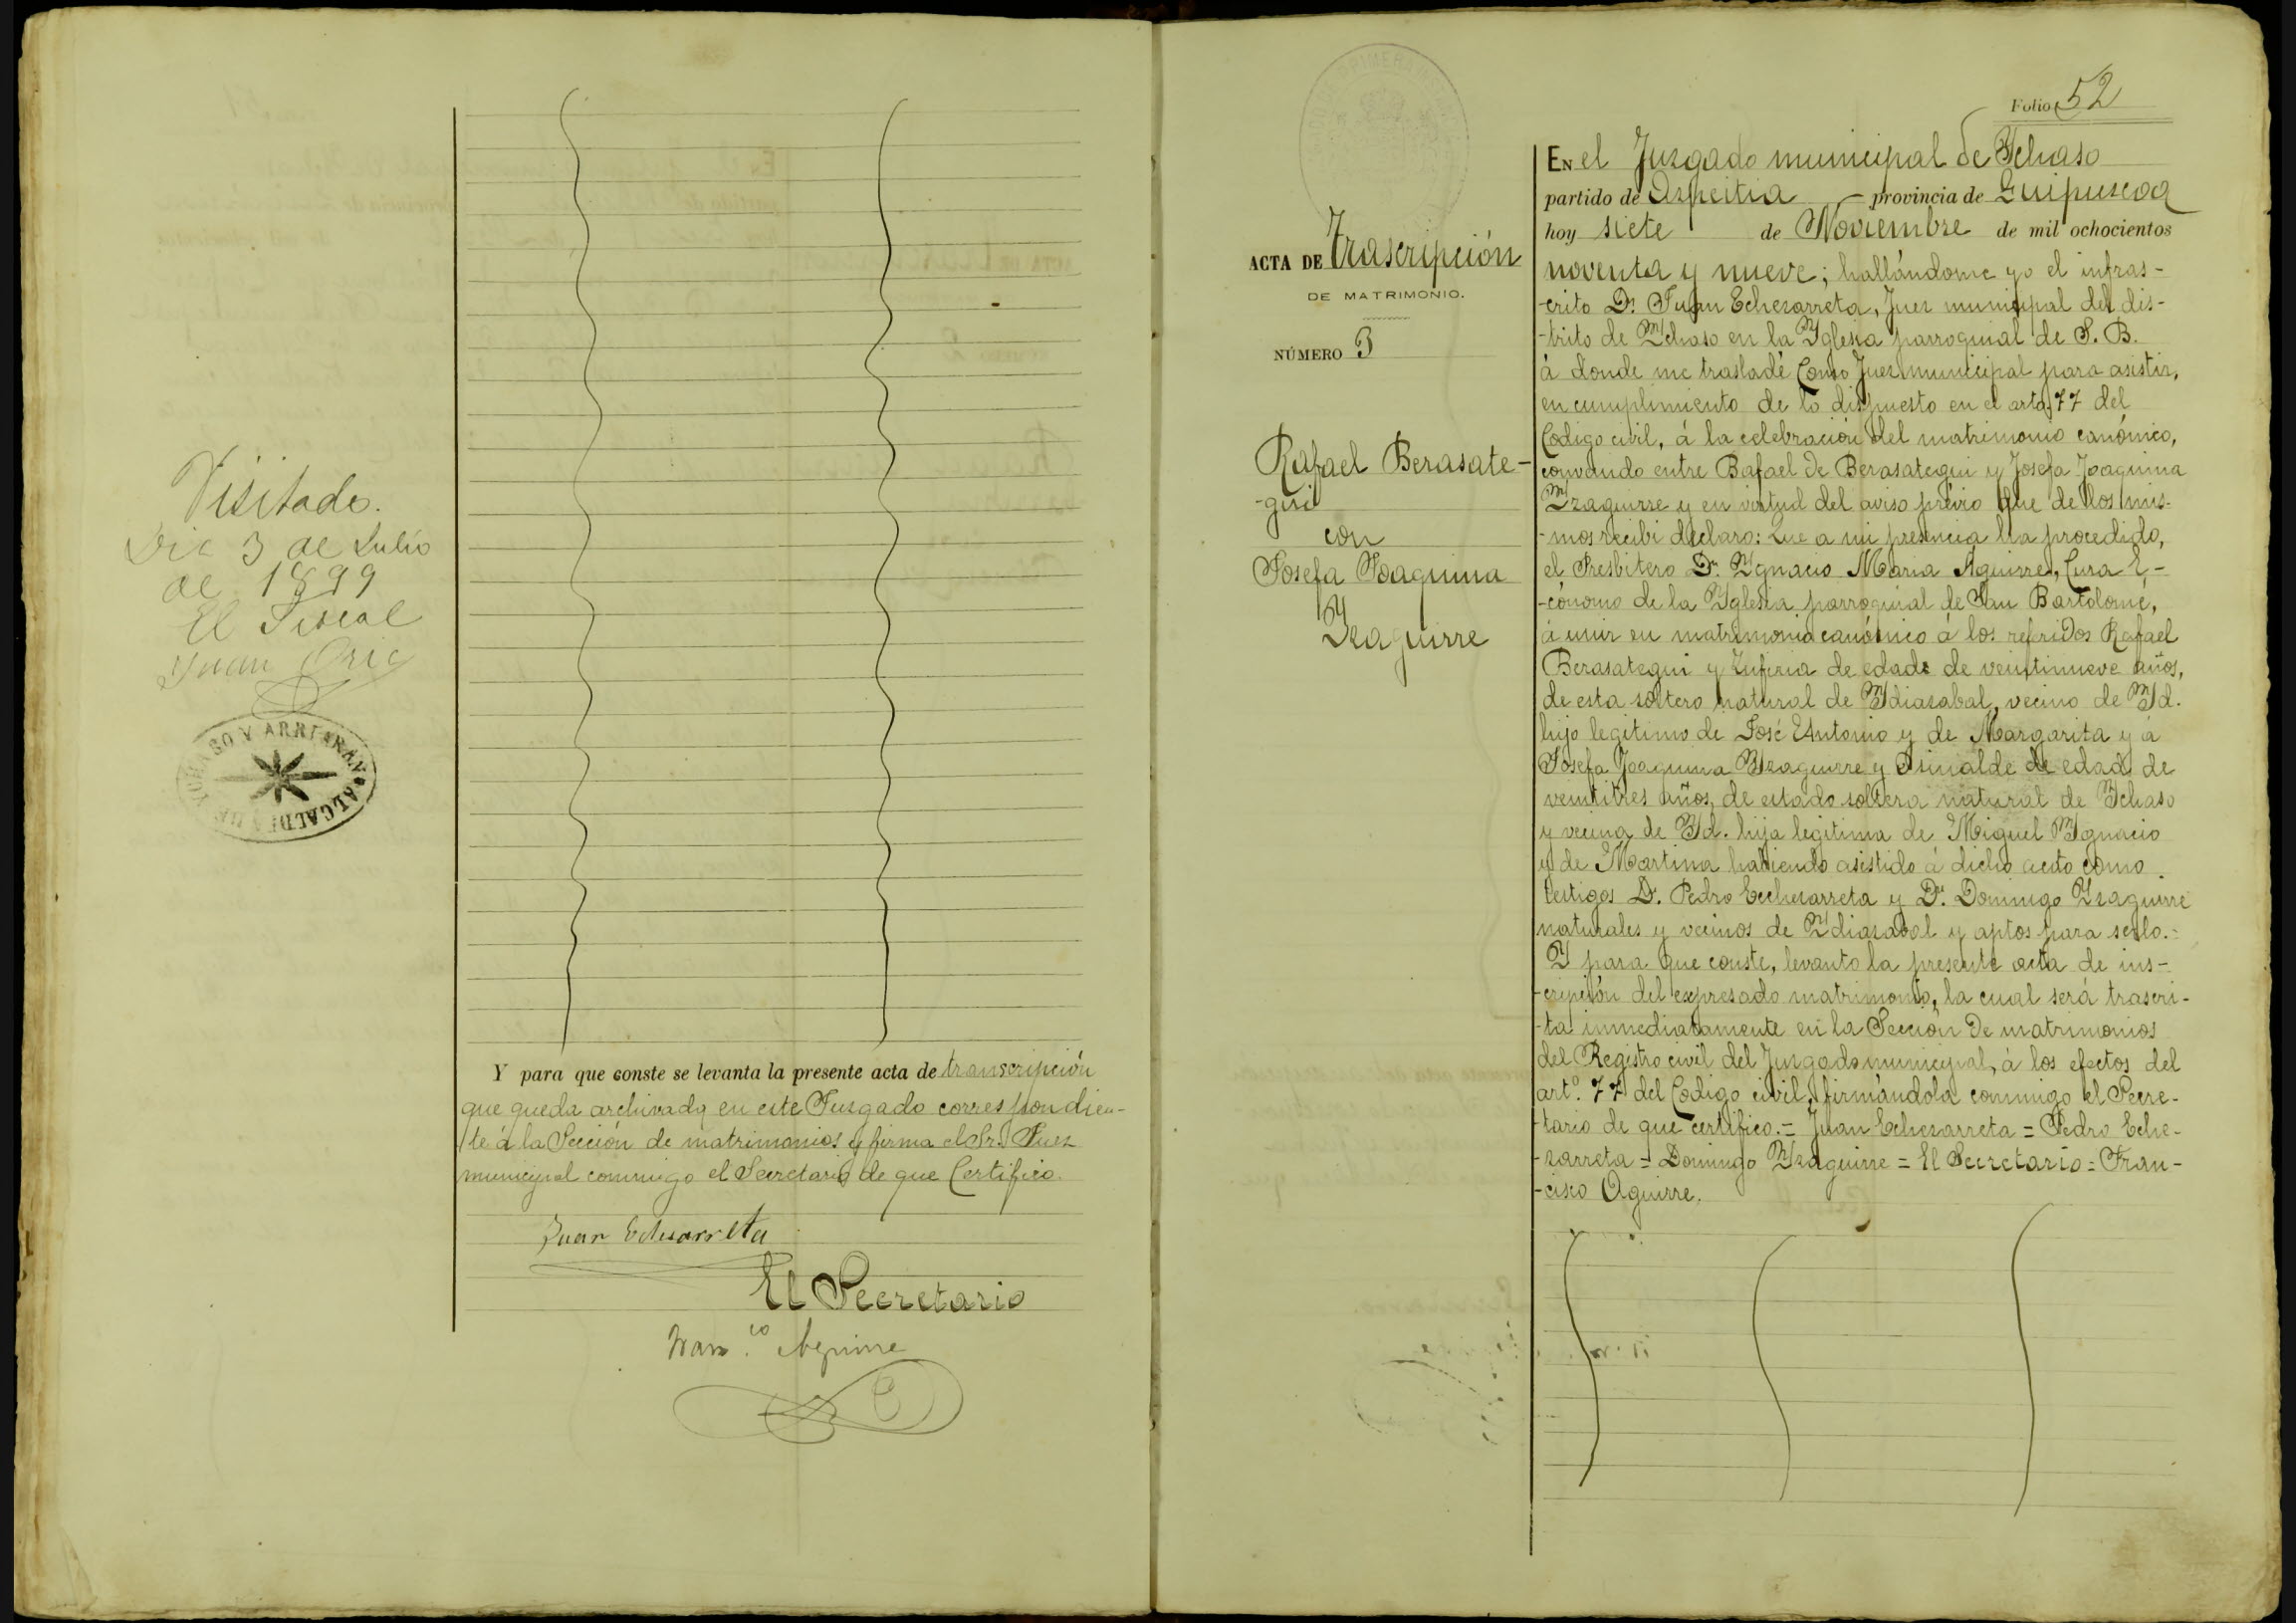 Visitado.
Dic 3 de Julio
de 1899
El Fiscal
Juan Oric
YCHASO Y ARRIARAN * ALCALDIA DE
Y para que conste se levanta la presente acta de transcripción
que queda archivada en este Jusgado correspondien-
te á la Sección de matrimonios y firma el Sr. Juez
municipal conmigo el Secretario de que Certifico.
Juan Echezarreta
El Secretario
Fran.co Aguirre
ACTA DE Trascripción
DE MATRIMONIO.
NÚMERO 3
Rafael Berasate-
-gui
con
Josefa Joaquina
Yzaguirre
Folio 52
EN el Juzgado municipal de Ychaso
partido de Azpeitia provincia de Guipuscoa
hoy siete de Noviembre de mil ochocientos
noventa y nueve; hallándome yo el infras-
-crito Dn. Juan Echezarreta, Juez municipal del dis-
-trito de Ychaso en la Yglesia parroquial de S. B.
á donde me trasladé Como Juez municipal para asistir,
en cumplimiento de lo dispuesto en el arto. 77 del
Codigo civil, á la celebración del matrimonio canónico,
convenido entre Rafael de Berasategui y Josefa Joaquina
Yzaguirre y en virtud del aviso prévio que de los mis-
-mos recibi declaro: Que a mi presencia ha procedido,
el Presbitero Dn. Ygnacio Maria Aguirre, Cura E-
-cónomo de la Yglesia parroquial de San Bartolomé,
á unir en matrimonio canónico á los referidos Rafael
Berasategui y Zuferia de edad de veintinueve años,
de esta soltero natural de Ydiazabal, vecino de Yd.
hijo legitimo de José Antonio y de Margarita y á
Josefa Joaquina Yzaguirre y Osinalde de edad de
veintitres años, de estado soltera natural de Ychaso
y vecina de Yd. hija legitima de Miguel Ygnacio
y de Martina habiendo asistido á dicho acto como
testigos D. Pedro Echezarreta y Dn. Domingo Yzaguirre
naturales y vecinos de Ydiazabal y aptos para serlo.=
Y para que conste, levanto la presente acta de ins-
-cripción del expresado matrimonio, la cual será trascri-
-ta inmediatamente en la Sección de matrimonios
del Registro civil del Juzgado municipal, á los efectos del
arto. 77 del Codigo civil, firmándola conmigo el Secre-
-tario de que certifico.= Juan Echezarreta = Pedro Eche-
-zarreta = Domingo Yzaguirre = El Secretario = Fran-
-cisco Aguirre.